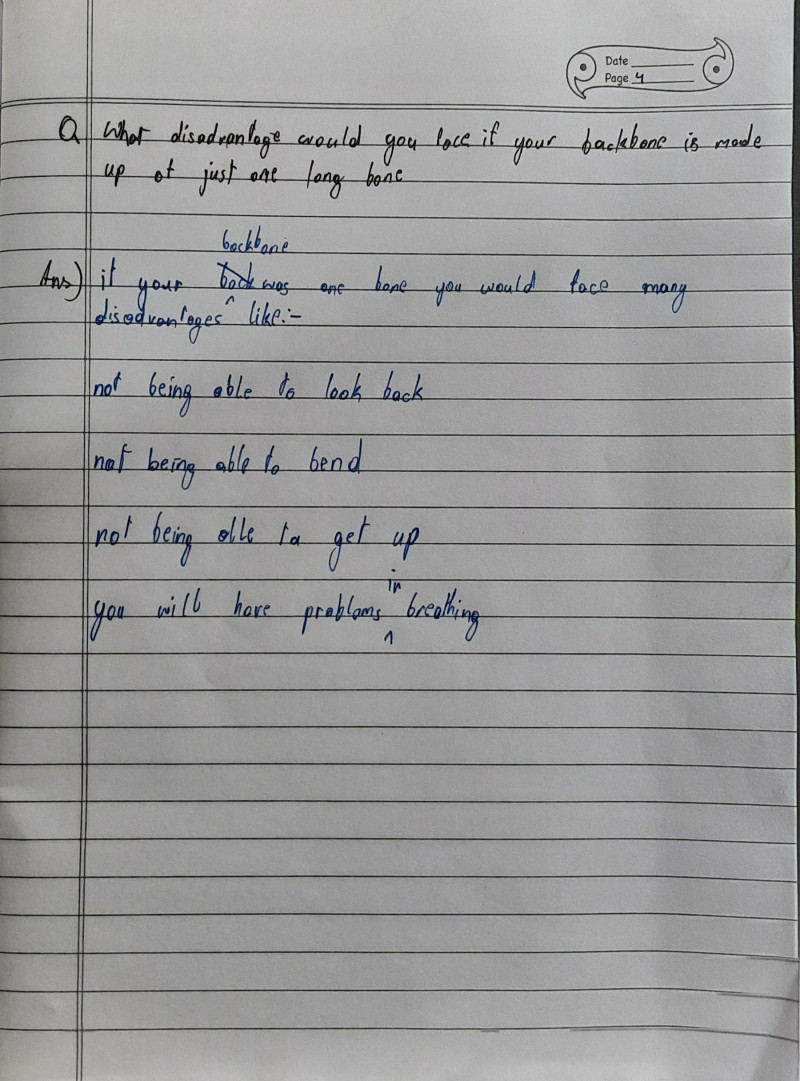 Date
Page 4
Q What disadvantage would you face if your backbone is made
up of just one long bone
backbone
Ans) if your back was one bone you would face many
disadvantages ^ like:-
not being able to look back
not being able to bend
not being alle to get up
in
you will have problams ^ breathing